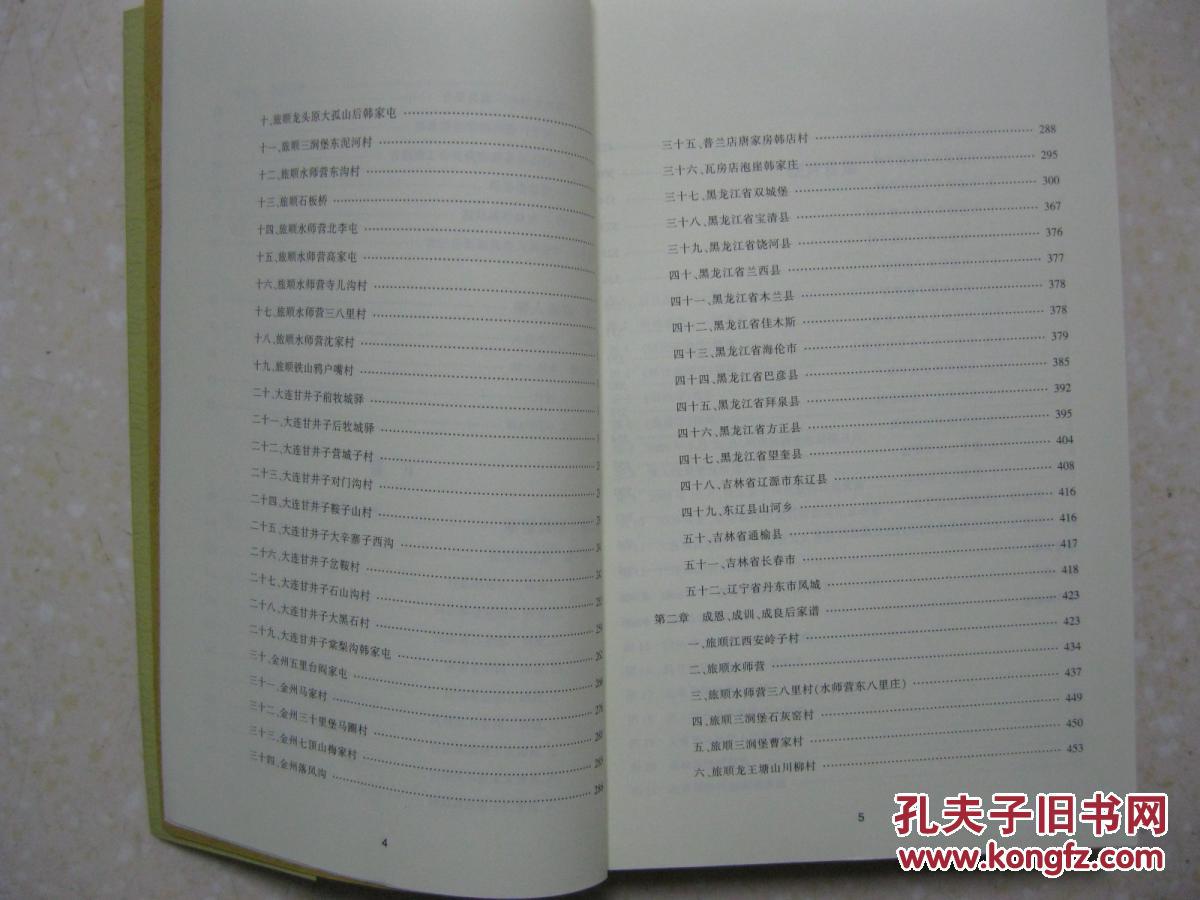 十、旅顺龙头原大孤山后韩家屯
十一、旅顺三涧堡东泥河村
十二、旅顺水师营东沟村
十三、旅顺石板桥
十四、旅顺水师营北李屯
十五、旅顺水师营高家屯
十六、旅顺水师营寺儿沟村
十七、旅顺水师营三八里村
十八、旅顺水师营沈家村
十九、旅顺铁山鸦户嘴村
二十、大连甘井子前牧城驿
二十一、大连甘井子后牧城驿
二十二、大连甘井子营城子村
二十三、大连甘井子对门沟村
二十四、大连甘井子鞍子山村
二十五、大连甘井子大辛寨子西沟
二十六、大连甘井子岔鞍村
二十七、大连甘井子石山沟村
二十八、大连甘井子大黑石村
二十九、大连甘井子棠梨沟韩家屯
三十、金州五里台阎家屯
三十一、金州马家村
三十二、金州三十里堡马圈村
三十三、金州七顶山梅家村
三十四、金州落凤沟
4
三十五、普兰店唐家房韩店村 288
三十六、瓦房店泡崖韩家庄 295
三十七、黑龙江省双城堡 300
三十八、黑龙江省宝清县 367
三十九、黑龙江省饶河县 376
四十、黑龙江省兰西县 377
四十一、黑龙江省木兰县 378
四十二、黑龙江省佳木斯 378
四十三、黑龙江省海伦市 379
四十四、黑龙江省巴彦县 385
四十五、黑龙江省拜泉县 392
四十六、黑龙江省方正县 395
四十七、黑龙江省望奎县 404
四十八、吉林省辽源市东辽县 408
四十九、东辽县山河乡 416
五十、吉林省通榆县 416
五十一、吉林省长春市 417
五十二、辽宁省丹东市凤城 418
第二章 成恩、成训、成良后家谱 423
一、旅顺江西安岭子村 423
二、旅顺水师营 434
三、旅顺水师营三八里村(水师营东八里庄) 437
四、旅顺三涧堡石灰窑村 449
五、旅顺三涧堡曹家村 450
六、旅顺龙王塘山川柳村 453
5
孔夫子旧书网
www.kongfz.com